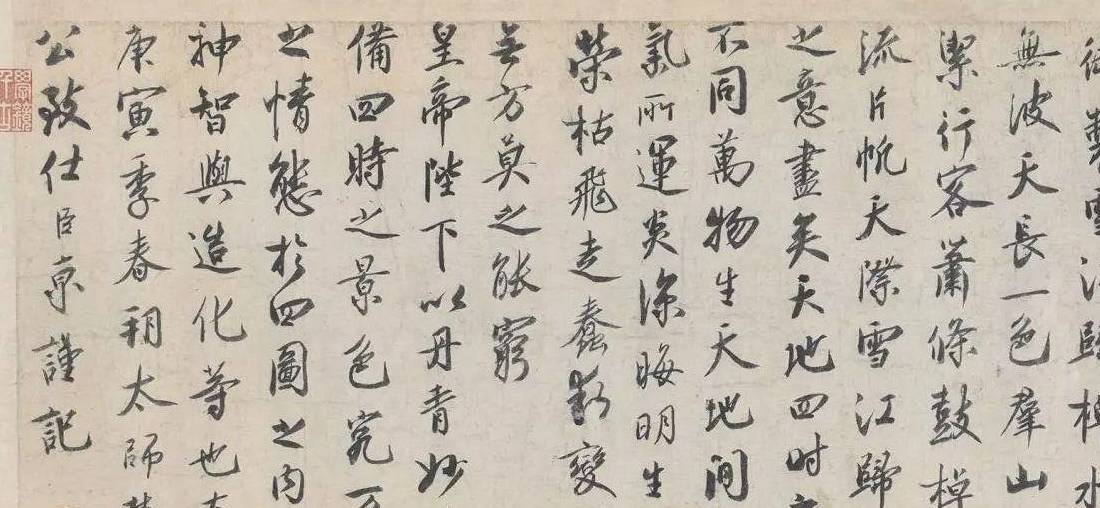 御製雪江歸棹水
無波天長一色羣山
潔行客蕭條鼓棹
流片帆天際雪江歸
之意盡矣天地四时
不同萬物生天地間
氣所運炎涼晦明生
榮枯飛走蠢動變
無方莫之能窮
皇帝陛下以丹青妙
備四時之景色究万
之情態於四圖之内
神智與造化等也
庚寅季春朔太師
公致仕臣京謹記